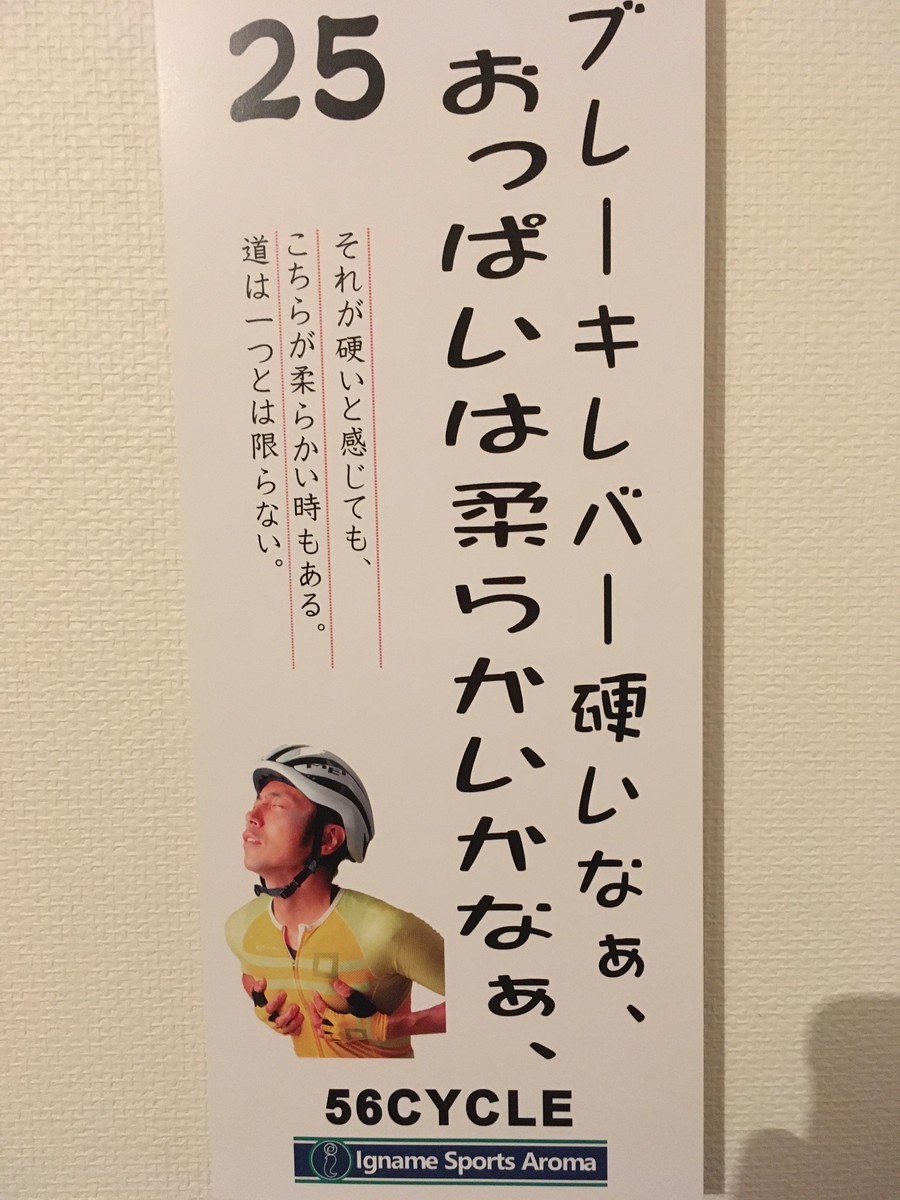 ブレーキレバー硬いなぁ、
おっぱいは柔らかいかなぁ、
25
それが硬いと感じても、
こちらが柔らかい時もある。
道は一つとは限らない。
MET
56CYCLE
Igname Sports Aroma